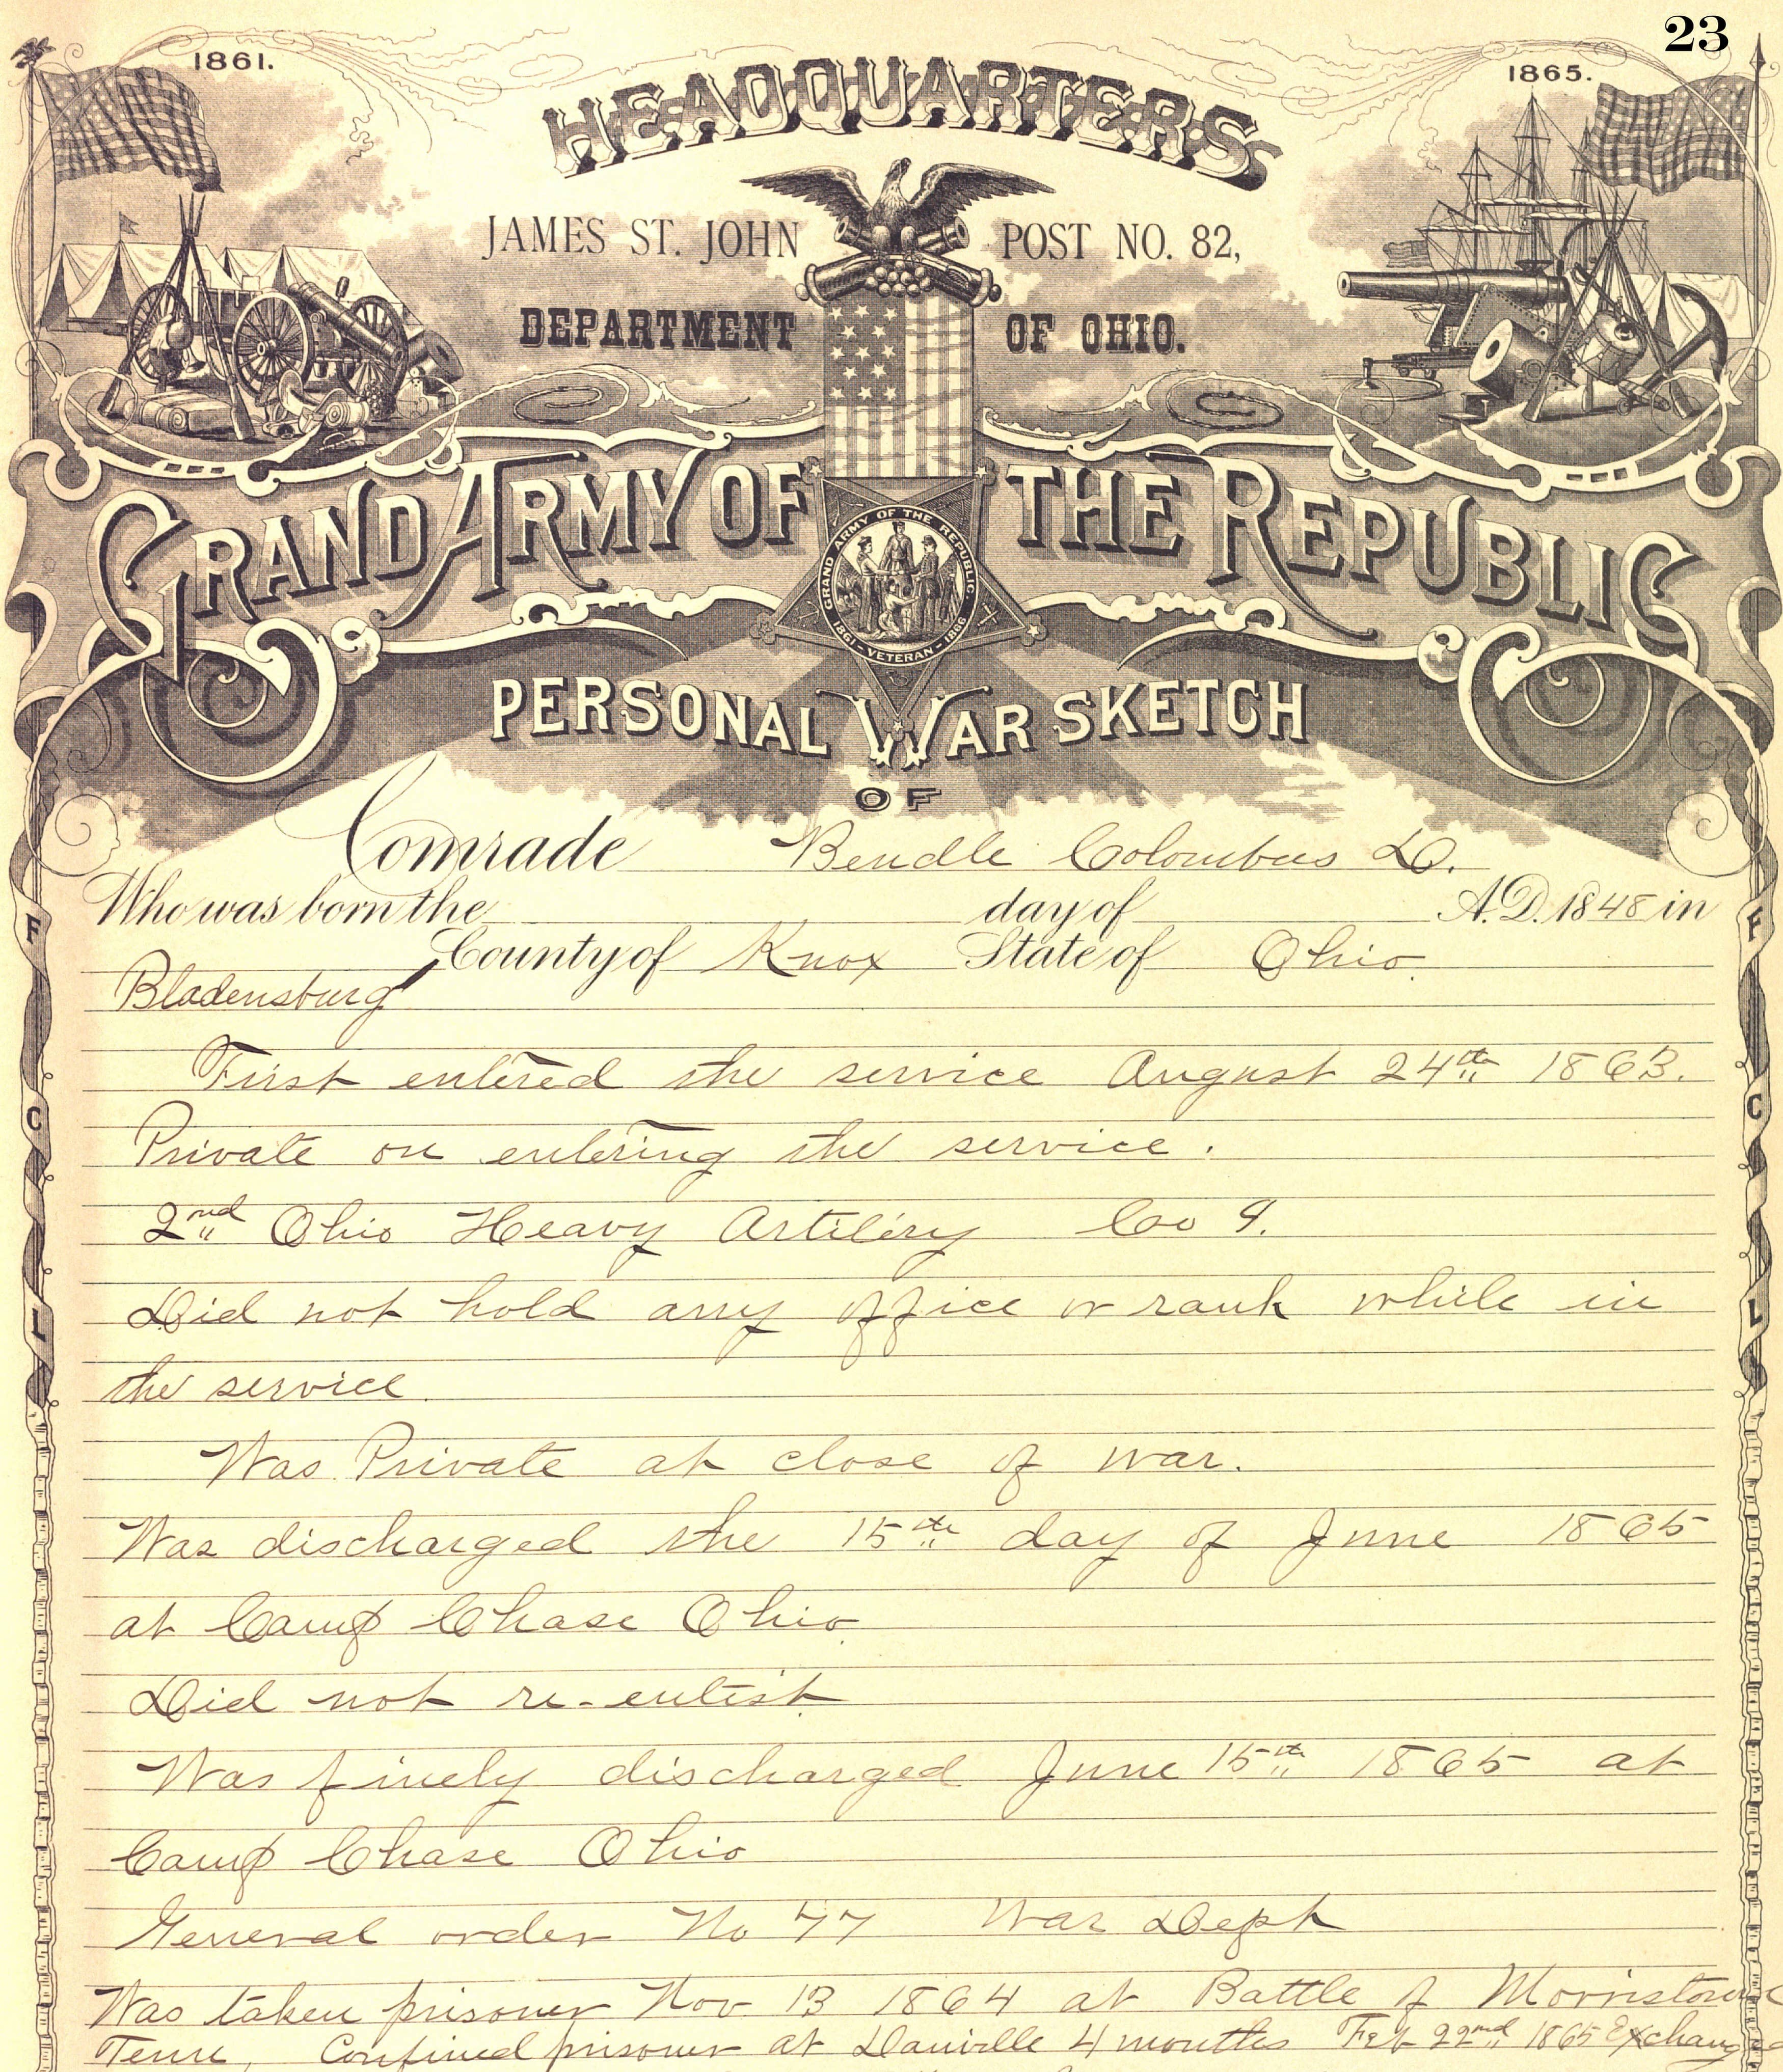 23
1861.
1865.
HEADQUARTERS
JAMES ST. JOHN POST NO. 82,
DEPARTMENT OF OHIO.
GRAND ARMY OF THE REPUBLIC
GRAND ARMY OF THE REPUBLIC
1861 - VETERAN - 1866
PERSONAL WAR SKETCH
OF
Comrade Bendle Colombus D.
Who was born the day of A.D. 1848 in
County of Knox State of Ohio.
Bladensburg
First entered the service August 24th 1863.
Private on entering the service.
2nd Ohio Heavy Artilery Co
Did not hold any office or rank while in
the service.
Was Private at close of war.
Was discharged the 15th day of June 1865
at Camp Chase Ohio.
Did not re-enlist.
Was finely discharged June 15th 1865 at
Camp Chase Ohio
General order No 77 War Dept
Was taken prisoner Nov 13 1864 at Battle of Morristown
Tenn, Confined prisoner at Danville 4 months Feb 22nd 1865 Exchanged
F
C
L
F
C
L